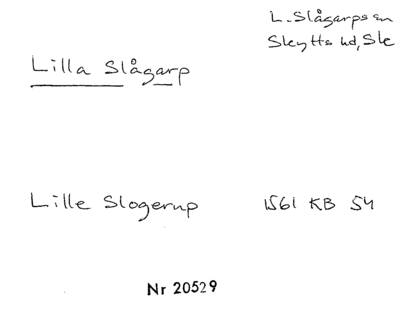 L. Slågarps sn
Skytts hd, Sk
Lilla Slågarp
Lille Slogerup 1561 KB 54
Nr 20529